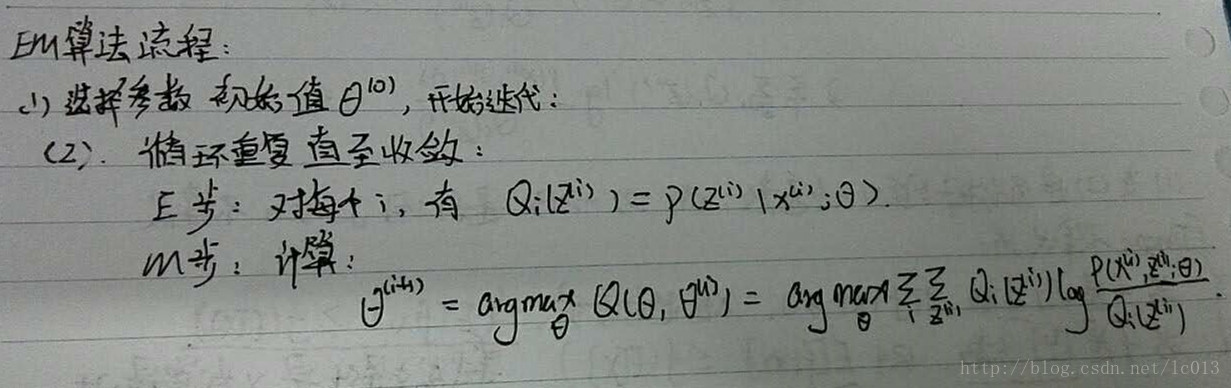 EM算法流程:
(1) 选择参数 初始值 θ^(0), 开始迭代:
(2). 循环重复直至收敛:
E步: 对每个i, 有 Q_i(z^(i)) = P(z^(i) | x^(i); θ).
M步: 计算:
θ^(i+1) = argmax_θ Q(θ, θ^(i)) = arg max_θ Σ_i Σ_z^(i) Q_i(z^(i)) log P(x^(i), z^(i); θ) / Q_i(z^(i)) .
http://blog.csdn.net/lc013